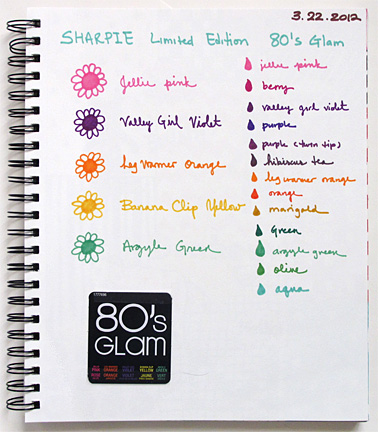 3.22.2012
SHARPIE Limited Edition 80's Glam
Jellie pink
Valley Girl Violet
Leg Warmer Orange
Banana Clip Yellow
Argyle Green
jellie pink
berry
valley girl violet
purple
purple (twin tip)
hibiscus tea
leg warmer orange
orange
marigold
Green
argyle green
olive
aqua
80's
GLAM